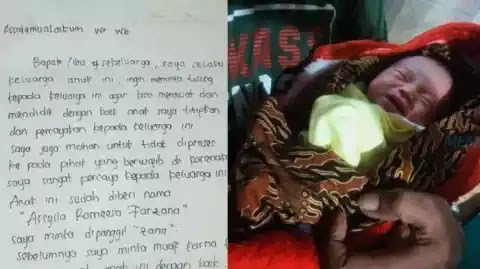 Assalamualaikum Wr Wb
Bapak / ibu sekeluarga, saya selaku
keluarga anak ini, ingin meminta tolong
kepada keluarga ini agar bisa merawat dan
mendidik dengan baik anak saya titipkan
dan percayakan kepada keluarga ini
saya juga mohon untuk tidak diproses
ke pada pihak yang berwajib di
saya sangat percaya kepada keluarga ini
Anak ini sudah diberi nama
"Arsyila Romeesa Farzana"
saya minta dipanggil "zana"
sebelumnya saya minta maaf karna
anak ini dengan baik
KASI